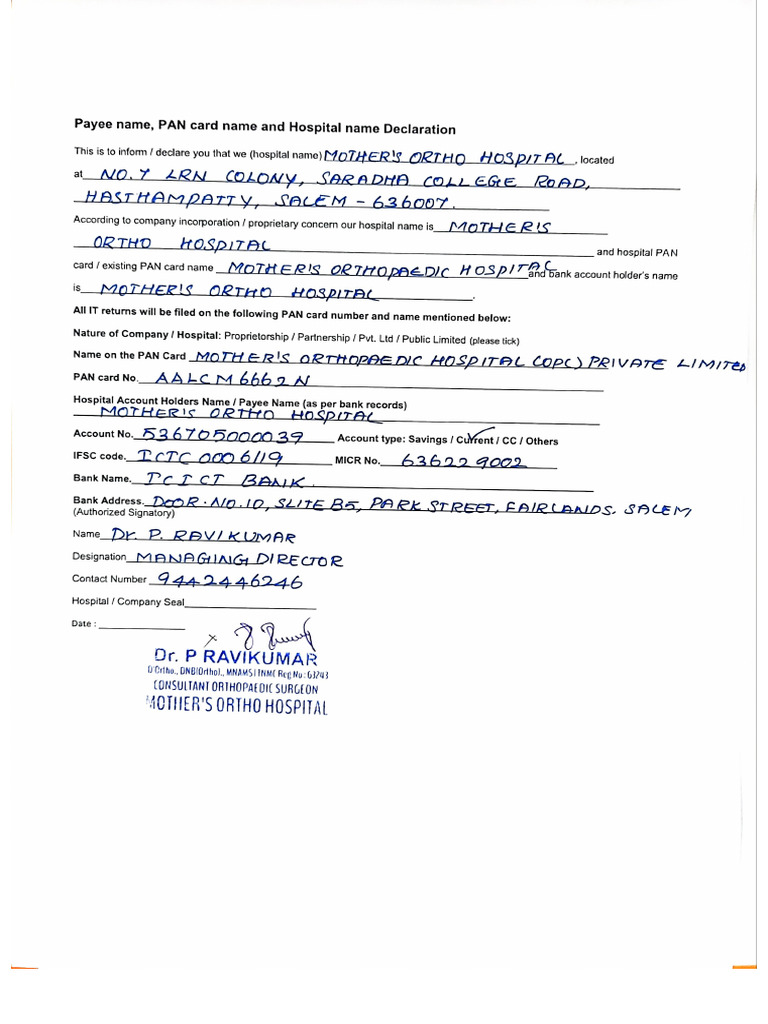 Payee name, PAN card name and Hospital name Declaration
This is to inform / declare you that we (hospital name) MOTHER'S ORTHO HOSPITAL, located
at NO.7 LRN COLONY, SARADHA COLLEGE ROAD,
HASTHAMPATTY, SALEM - 636007.
According to company incorporation / proprietary concern our hospital name is MOTHER'S
ORTHO HOSPITAL and hospital PAN
card / existing PAN card name MOTHER'S ORTHOPAEDIC HOSPITAL and bank account holder's name
is MOTHER'S ORTHO HOSPITAL.
All IT returns will be filed on the following PAN card number and name mentioned below:
Nature of Company / Hospital: Proprietorship / Partnership / Pvt. Ltd / Public Limited (please tick)
Name on the PAN Card MOTHER'S ORTHOPAEDIC HOSPITAL (OPC) PRIVATE LIMITED
PAN card No. AALCM6662N
Hospital Account Holders Name / Payee Name (as per bank records)
MOTHER'S ORTHO HOSPITAL
Account No. 536705000039 Account type: Savings / Current / CC / Others
IFSC code. ICIC0006119 MICR No. 636229002
Bank Name. ICICI BANK.
Bank Address. DOOR.NO.10, SLITE B5, PARK STREET, FAIRLANDS. SALEM
(Authorized Signatory)
Name Dr. P. RAVIKUMAR
Designation MANAGING DIRECTOR
Contact Number 9442446246
Hospital / Company Seal
Date :
Dr. P RAVIKUMAR
D'Ortho., DNB(Ortho)., MNAMS | TNMC Reg No : 63243
CONSULTANT ORTHOPAEDIC SURGEON
MOTHER'S ORTHO HOSPITAL